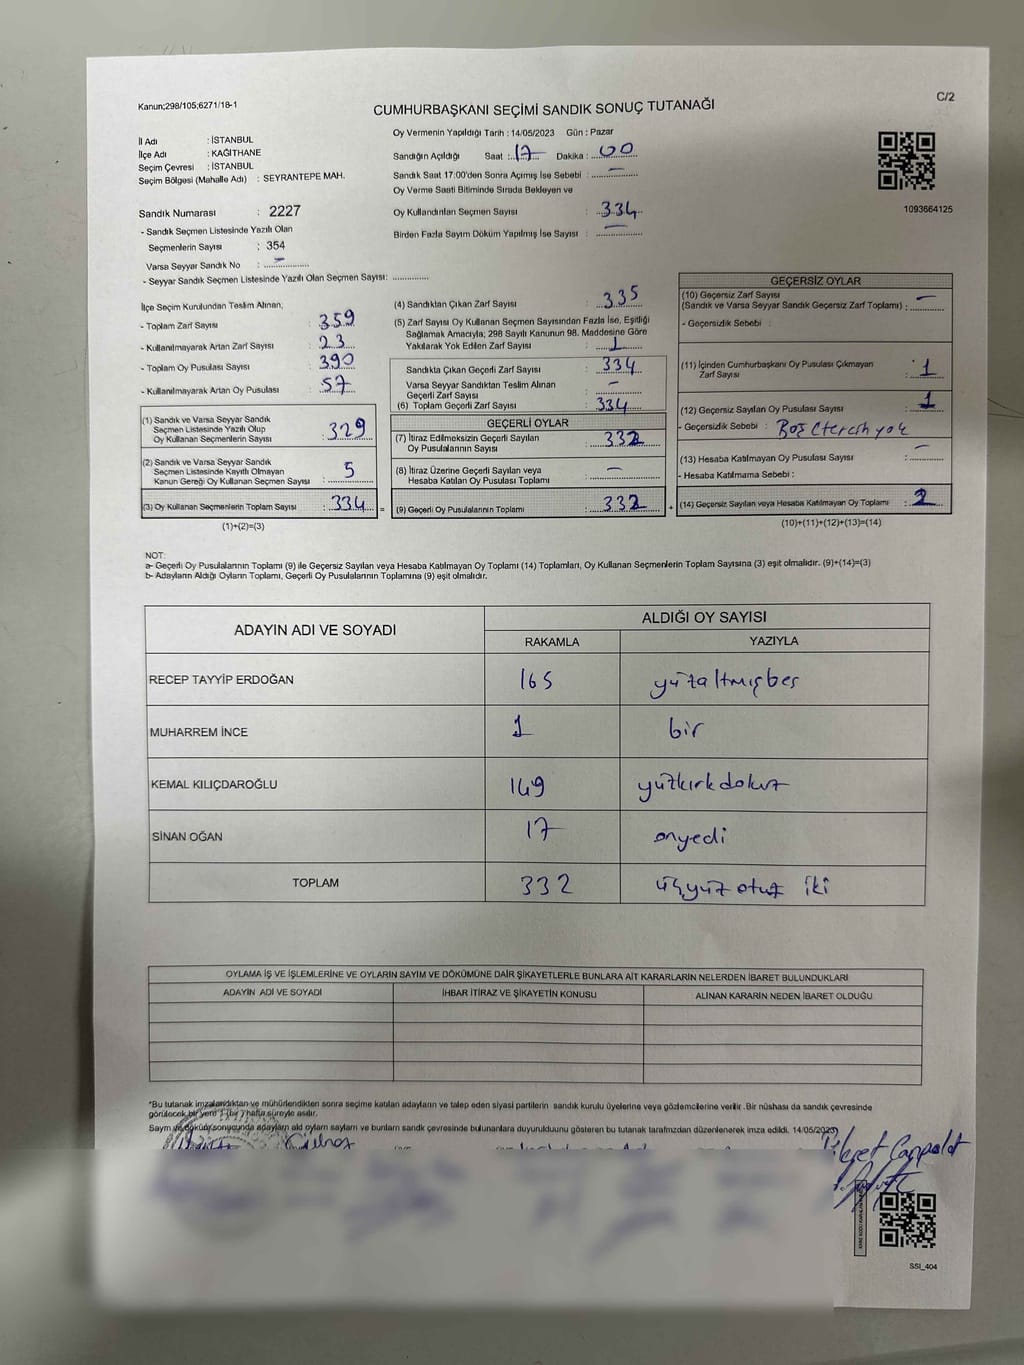 Kanun;298/105;6271/18-1
C/2
CUMHURBAŞKANI SEÇİMİ SANDIK SONUÇ TUTANAĞI
İl Adı : İSTANBUL
İlçe Adı : KAĞITHANE
Seçim Çevresi : İSTANBUL
Seçim Bölgesi (Mahalle Adı) : SEYRANTEPE MAH.
Sandık Numarası : 2227
- Sandık Seçmen Listesinde Yazılı Olan
Seçmenlerin Sayısı : 354
Varsa Seyyar Sandık No : –
- Seyyar Sandık Seçmen Listesinde Yazılı Olan Seçmen Sayısı: ..............
Oy Vermenin Yapıldığı Tarih : 14/05/2023 Gün : Pazar
Sandığın Açıldığı Saat : 17 Dakika : 00
Sandık Saat 17:00'den Sonra Açımış İse Sebebi : –
Oy Verme Saati Bitiminde Sırada Bekleyen ve
Oy Kullandırılan Seçmen Sayısı : 334
Birden Fazla Sayım Döküm Yapılmış İse Sayısı : –
1093664125
İlçe Seçim Kurulundan Teslim Alınan;
- Toplam Zarf Sayısı : 359
- Kullanılmayarak Artan Zarf Sayısı : 23
- Toplam Oy Pusulası Sayısı : 390
- Kullanılmayarak Artan Oy Pusulası : 57
(1) Sandık ve Varsa Seyyar Sandık
Seçmen Listesinde Yazılı Olup
Oy Kullanan Seçmenlerin Sayısı : 329
(2) Sandık ve Varsa Seyyar Sandık
Seçmen Listesinde Kayıtlı Olmayan
Kanun Gereği Oy Kullanan Seçmen Sayısı : 5
(3) Oy Kullanan Seçmenlerin Toplam Sayısı : 334 =
(1)+(2)=(3)
(4) Sandıktan Çıkan Zarf Sayısı : 335
(5) Zarf Sayısı Oy Kullanan Seçmen Sayısından Fazla İse, Eşitliği
Sağlamak Amacıyla; 298 Sayılı Kanunun 98. Maddesine Göre
Yakılarak Yok Edilen Zarf Sayısı : 1
Sandıkta Çıkan Geçerli Zarf Sayısı : 334
Varsa Seyyar Sandıktan Teslim Alınan
Geçerli Zarf Sayısı : –
(6) Toplam Geçerli Zarf Sayısı : 334
GEÇERLİ OYLAR
(7) İtiraz Edilmeksizin Geçerli Sayılan
Oy Pusulalarının Sayısı : 332
(8) İtiraz Üzerine Geçerli Sayılan veya
Hesaba Katılan Oy Pusulası Toplamı : –
(9) Geçerli Oy Pusulalarının Toplamı : 332 +
GEÇERSİZ OYLAR
(10) Geçersiz Zarf Sayısı
(Sandık ve Varsa Seyyar Sandık Geçersiz Zarf Toplamı) : –
- Geçersizlik Sebebi :
(11) İçinden Cumhurbaşkanı Oy Pusulası Çıkmayan
Zarf Sayısı : 1
(12) Geçersiz Sayılan Oy Pusulası Sayısı : 1
- Geçersizlik Sebebi : Boş (tercih yok
(13) Hesaba Katılmayan Oy Pusulası Sayısı : –
- Hesaba Katılmama Sebebi :
(14) Geçersiz Sayılan veya Hesaba Katılmayan Oy Toplamı : 2
(10)+(11)+(12)+(13)=(14)
NOT:
a- Geçerli Oy Pusulalarının Toplamı (9) ile Geçersiz Sayılan veya Hesaba Katılmayan Oy Toplamı (14) Toplamları, Oy Kullanan Seçmenlerin Toplam Sayısına (3) eşit olmalıdır. (9)+(14)=(3)
b- Adayların Aldığı Oyların Toplamı, Geçerli Oy Pusulalarının Toplamına (9) eşit olmalıdır.
ADAYIN ADI VE SOYADI
ALDIĞI OY SAYISI
RAKAMLA YAZIYLA
RECEP TAYYİP ERDOĞAN 165 yüzaltmışbeş
MUHARREM İNCE 1 bir
KEMAL KILIÇDAROĞLU 149 yüzkırkdokuz
SİNAN OĞAN 17 onyedi
TOPLAM 332 üçyüz otuz iki
OYLAMA İŞ VE İŞLEMLERİNE VE OYLARIN SAYIM VE DÖKÜMÜNE DAİR ŞİKAYETLERLE BUNLARA AİT KARARLARIN NELERDEN İBARET BULUNDUKLARI
ADAYIN ADI VE SOYADI İHBAR İTİRAZ VE ŞİKAYETİN KONUSU ALINAN KARARIN NEDEN İBARET OLDUĞU
*Bu tutanak imzalandıktan ve mühürlendikten sonra seçime katılan adayların ve talep eden siyasi partilerin sandık kurulu üyelerine veya gözlemcilerine verilir. Bir nüshası da sandık çevresinde
görülecek bir yere 1 (bir) hafta süreyle asılır.
Sayım ve döküm sonucunda adayların aldı oyların sayları ve bunların sandk çevresinde bulunanlara duyurulduunu gösteren bu tutanak tarafmzdan düzenlenerek imza edildi. 14/05/2023
SSI_404